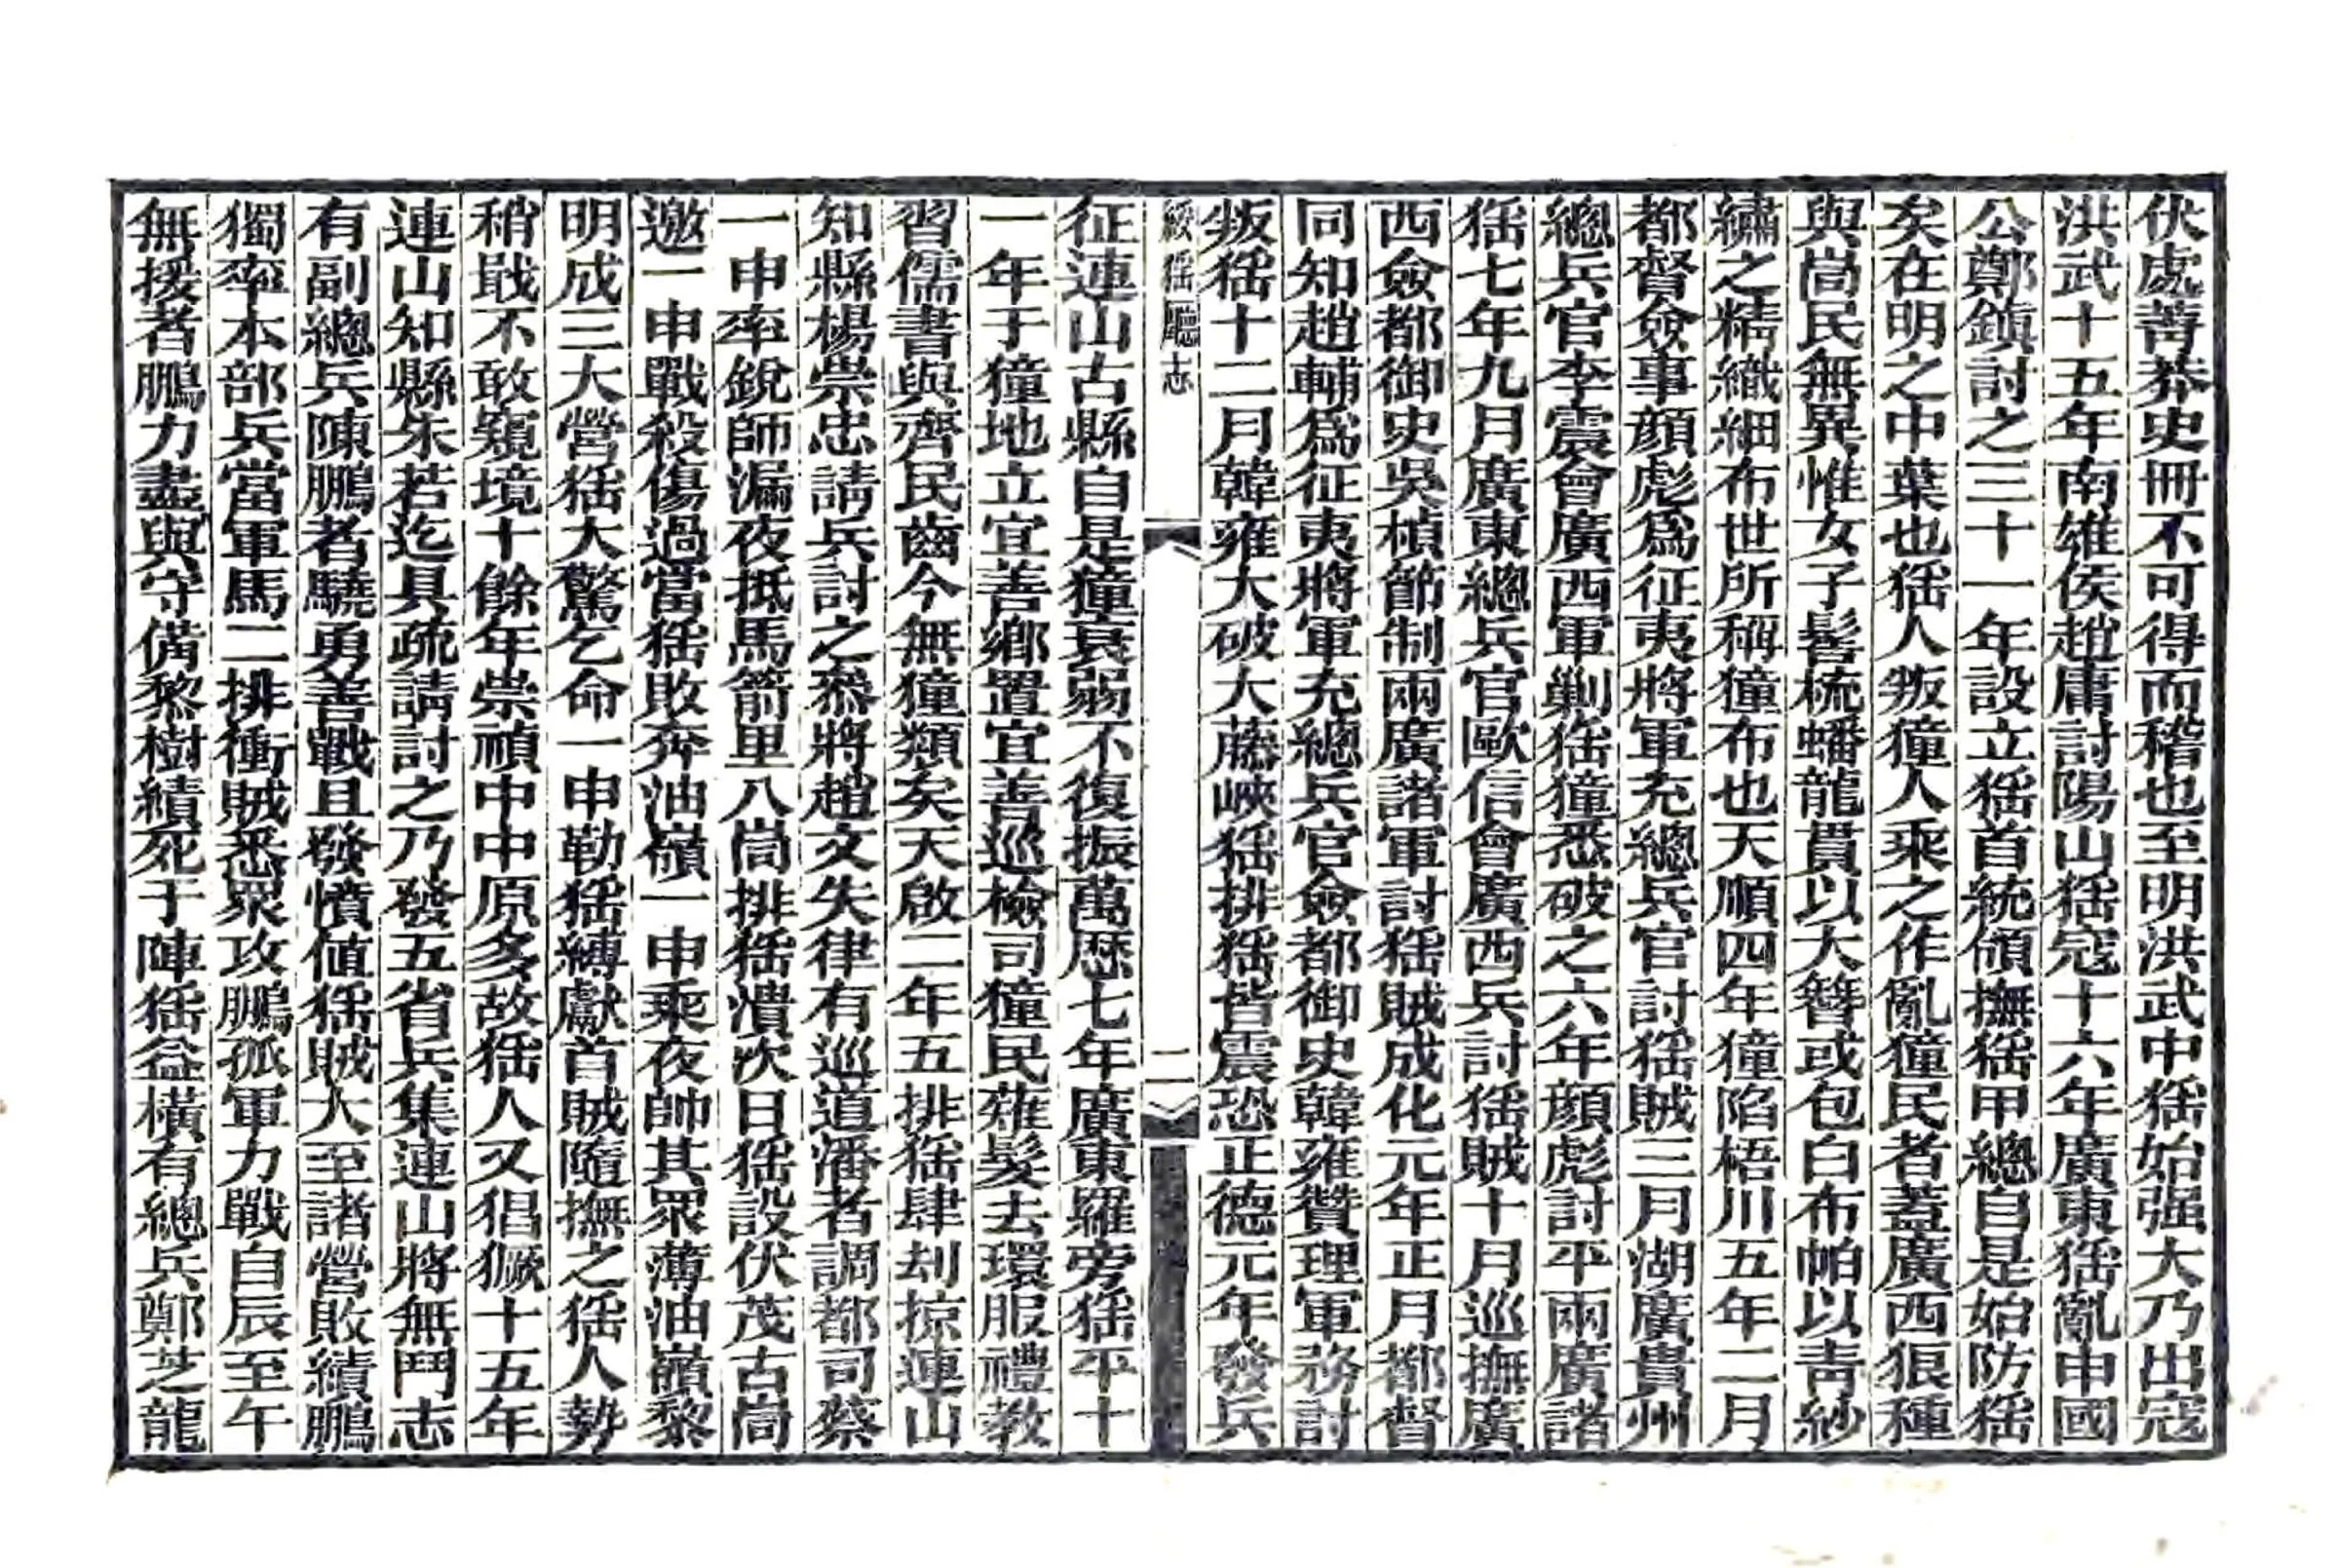 伏處菁莽史冊不可得而稽也至明洪武中猺始强大乃出寇
洪武十五年南雄侯趙庸討陽山猺寇十六年廣東猺亂申國
公鄭鎮討之三十一年設立猺首統領撫猺甲總自是始防猺
矣在明之中葉也猺人叛獞人乘之作亂獞民者蓋廣西狼種
與峝民無異惟女子髻梳蟠龍貫以大簪或包白布帕以青紗
繡之精織細布世所稱獞布也天順四年獞陷梧川五年二月
都督僉事顏彪爲征夷將軍充總兵官討猺賊三月湖廣貴州
總兵官李震會廣西軍剿猺獞悉破之六年顏彪討平兩廣諸
猺七年九月廣東總兵官歐信會廣西兵討猺賊十月巡撫廣
西僉都御史吳楨節制兩廣諸軍討猺賊成化元年正月都督
同知趙輔爲征夷將軍充總兵官僉都御史韓雍贊理軍務討
叛猺十二月韓雍大破大藤峽猺排猺皆震恐正德元年發兵
綏猺廳志
二
征連山古縣自是獞衰弱不復振萬歷七年廣東羅旁猺平十
一年于獞地立宜善鄉置宜善巡檢司獞民薙髮去環服禮教
習儒書與齊民齒今無獞類矣天啟二年五排猺肆刦掠連山
知縣楊崇忠請兵討之叅將趙文失律有巡道潘者調都司蔡
一申率銳師漏夜抵馬箭里八峝排猺潰次日猺設伏茂古峝
邀一申戰殺傷過當猺敗奔油嶺一申乘夜帥其眾薄油嶺黎
明成三大營猺大驚乞命一申勒猺縛獻首賊隨撫之猺人勢
稍戢不敢窺境十餘年崇禎中中原多故猺人又猖獗十五年
連山知縣朱若迄具疏請討之乃發五省兵集連山將無鬥志
有副總兵陳鵬者驍勇善戰且發憤値猺賊大至諸營敗績鵬
獨率本部兵當軍馬二排衝賊悉眾攻鵬孤軍力戰自辰至午
無援者鵬力盡與守備黎樹績死于陣猺益橫有總兵鄭芝龍